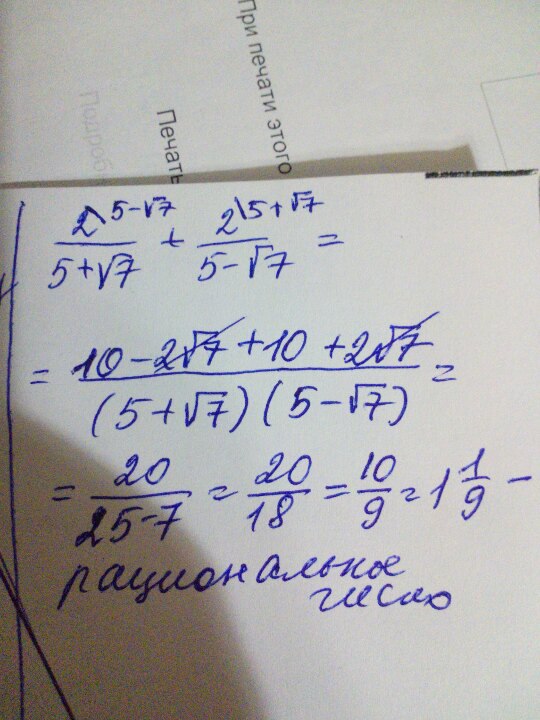 При печати этого
Печать
Подробн
2\5-√7 / 5+√7 + 2\5+√7 / 5-√7 =
= 10-2√7+10+2√7 / (5+√7)(5-√7) =
= 20 / 25-7 = 20/18 = 10/9 = 1 1/9 -
рациональное
число